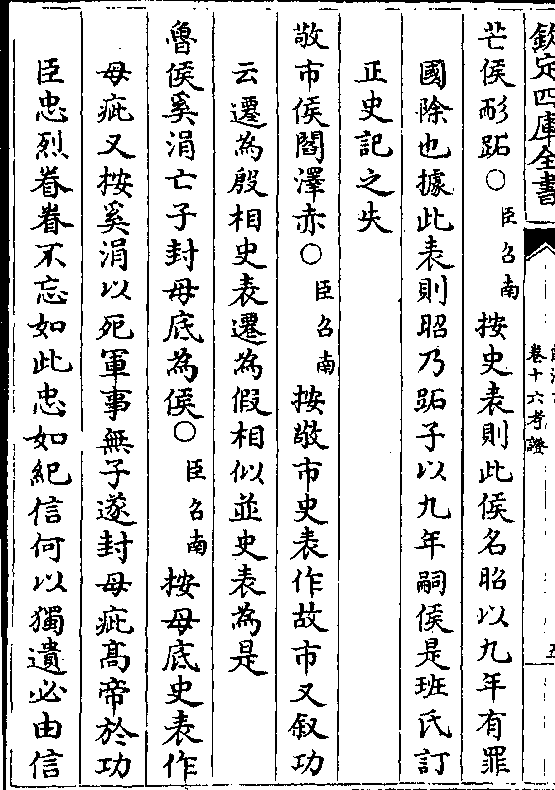 欽定四庫全書
卷十六考證
芒侯耏跖○臣召南按史表則此侯名昭以九年有罪
國除也據此表則昭乃跖子以九年嗣侯是班氏訂
正史記之失
敬市侯閻澤赤○臣召南按敬市史表作故市又叙功
云遷為殷相史表遷為假相似並史表為是
魯侯奚涓亡子封母底為侯○臣召南按母底史表作
母疵又按奚涓以死軍事無子遂封母疵高帝於功
臣忠烈眷眷不忘如此忠如紀信何以獨遺必由信